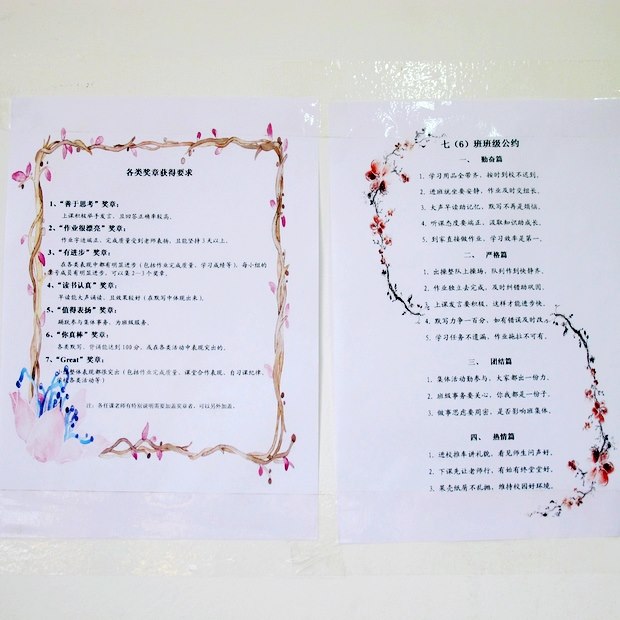 各类奖章获得要求
1、“善于思考”奖章：
上课积极举手发言，且回答正确率较高。
2、“作业很漂亮”奖章：
作业字迹端正，完成质量受到老师表扬，且能坚持3天以上。
3、“有进步”奖章：
在各类表现中都有明显进步（包括作业完成质量、学习成绩等），每小组的
组员有明显进步，可以集2-3个奖章。
4、“读书认真”奖章：
早读能大声诵读，且效果较好（在默写中体现出来）。
5、“值得表扬”奖章：
踊跃参与集体事务，为班级服务。
6、“你真棒”奖章：
各类默写、背诵能达到100分，或在各类活动中表现突出的。
7、“Great”奖章：
整体表现都很突出（包括作业完成质量、课堂合作表现、自习课纪律、
各类活动等）
注：各任课老师有特别说明需要加盖奖章者，可以另外加盖。
七（6）班班级公约
一、 勤奋篇
1. 学习用品全带齐，按时到校不迟到。
2. 进班就坐要安静，作业及时交组长。
3. 大声早读助记忆，默写不再是烦恼。
4. 听课态度要端正，汲取知识助成长。
5. 到家直接做作业，学习效率是第一。
二、 严格篇
1. 出操整队上操场，队列作到快静齐。
2. 作业独立去完成，及时纠错助巩固。
3. 上课发言要积极，这样才能进步快。
4. 默写力争一百分，如有错误及时改。
5. 学习任务不遗漏，作业拖拉不可有。
三、 团结篇
1. 集体活动勤参与，大家都出一份力。
2. 班级事务要关心，你我都是一份子。
3. 做事思虑要周密，是否影响班集体。
四、 热情篇
1. 进校推车讲礼貌，看见师生问声好。
2. 下课先让老师行，有始有终堂堂好。
3. 果壳纸屑不乱抛，维持校园好环境。